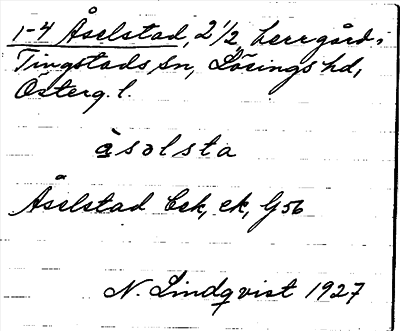 1-4 Åselstad, 2 1/2, herrgård i
Tingstads sn, Lösings hd,
Österg. l.
åsəlsta
Åselstad Eek, ek, G 56
N. Lindqvist 1927